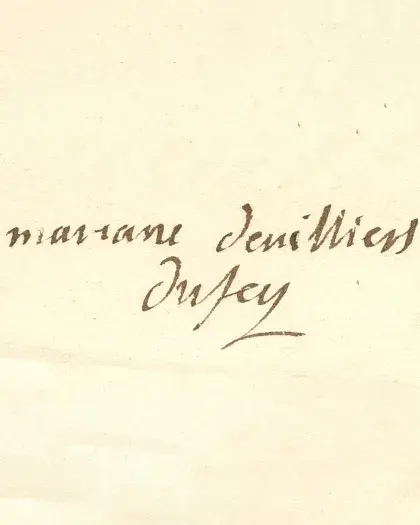 mariane devilliers
dufey